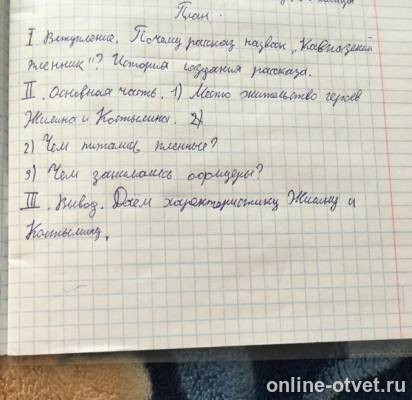 План.
I Вступление. Почему рассказ назван „Кавказский
пленник"? История создания рассказа.
II. Основная часть. 1) Место жительство героев
Жилина и Костылина. 2)
2) Чем питались пленные?
3) Чем занимались офицеры?
III. Вывод. Даём характористику Жилину и
Костылину.
online-otvet.ru